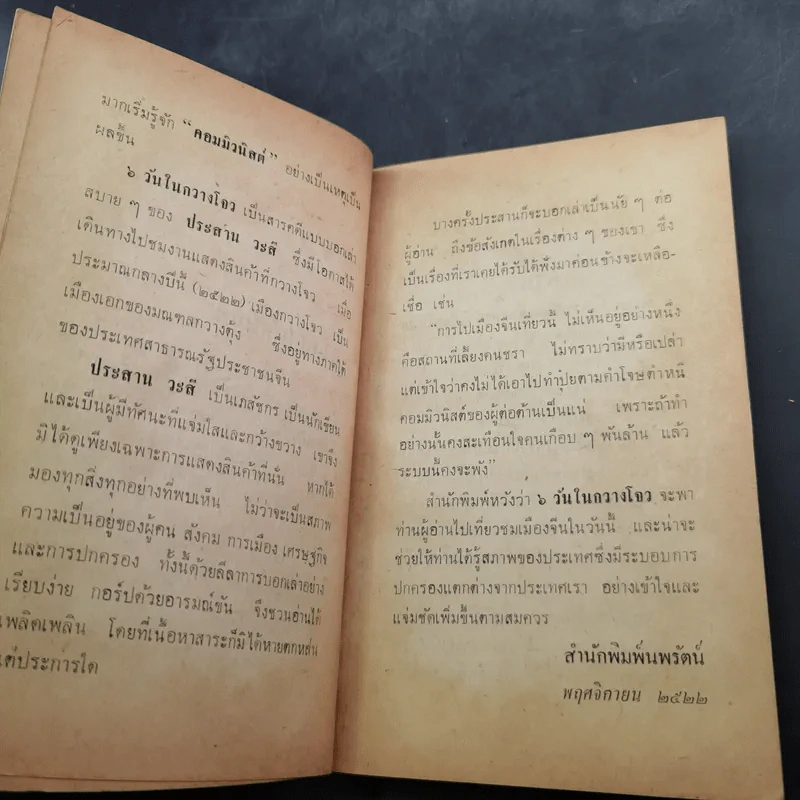 มากเริ่มรู้จัก “ คอมมิวนิสต์ ” อย่างเป็นเหตุเป็น
ผลขึ้น
๖ วันในกวางโจว เป็นสารคดีแบบบอกเล่า
สบาย ๆ ของ ประสาน วะสี ซึ่งมีโอกาสได้
เดินทางไปชมงานแสดงสินค้าที่กวางโจว เมื่อ
ประมาณกลางปีนี้ (๒๕๒๒) เมืองกวางโจว เป็น
เมืองเอกของมณฑลกวางตุ้ง ซึ่งอยู่ทางภาคใต้
ของประเทศสาธารณรัฐประชาชนจีน
ประสาน วะสี เป็นเภสัชกร เป็นนักเขียน
และเป็นผู้มีทัศนะที่แจ่มใสและกว้างขวาง เขาจึง
มิได้ดูเพียงเฉพาะการแสดงสินค้าที่นั่น หากได้
มองทุกสิ่งทุกอย่างที่พบเห็น ไม่ว่าจะเป็นสภาพ
ความเป็นอยู่ของผู้คน สังคม การเมือง เศรษฐกิจ
และการปกครอง ทั้งนี้ด้วยลีลาการบอกเล่าอย่าง
เรียบง่าย กอร์ปด้วยอารมณ์ขัน จึงชวนอ่านได้
เพลิดเพลิน โดยที่เนื้อหาสาระก็มิได้หายตกหล่น
แต่ประการใด
บางครั้งประสานก็จะบอกเล่าเป็นนัย ๆ ต่อ
ผู้อ่าน ถึงข้อสังเกตในเรื่องต่าง ๆ ของเขา ซึ่ง
เป็นเรื่องที่เราเคยได้รับได้ฟังมาค่อนข้างจะเหลือ-
เชื่อ เช่น
“การไปเมืองจีนเที่ยวนี้ ไม่เห็นอยู่อย่างหนึ่ง
คือสถานที่เลี้ยงคนชรา ไม่ทราบว่ามีหรือเปล่า
แต่เข้าใจว่าคงไม่ได้เอาไปทำปุ๋ยตามคำโจษตำหนิ
คอมมิวนิสต์ของผู้ต่อต้านเป็นแน่ เพราะถ้าทำ
อย่างนั้นคงสะเทือนใจคนเกือบ ๆ พันล้าน แล้ว
ระบบนี้คงจะพัง”
สำนักพิมพ์หวังว่า ๖ วันในกวางโจว จะพา
ท่านผู้อ่านไปเที่ยวชมเมืองจีนในวันนี้ และน่าจะ
ช่วยให้ท่านได้รู้สภาพของประเทศซึ่งมีระบอบการ
ปกครองแตกต่างจากประเทศเรา อย่างเข้าใจและ
แจ่มชัดเพิ่มขึ้นตามสมควร
สำนักพิมพ์นพรัตน์
พฤศจิกายน ๒๕๒๒